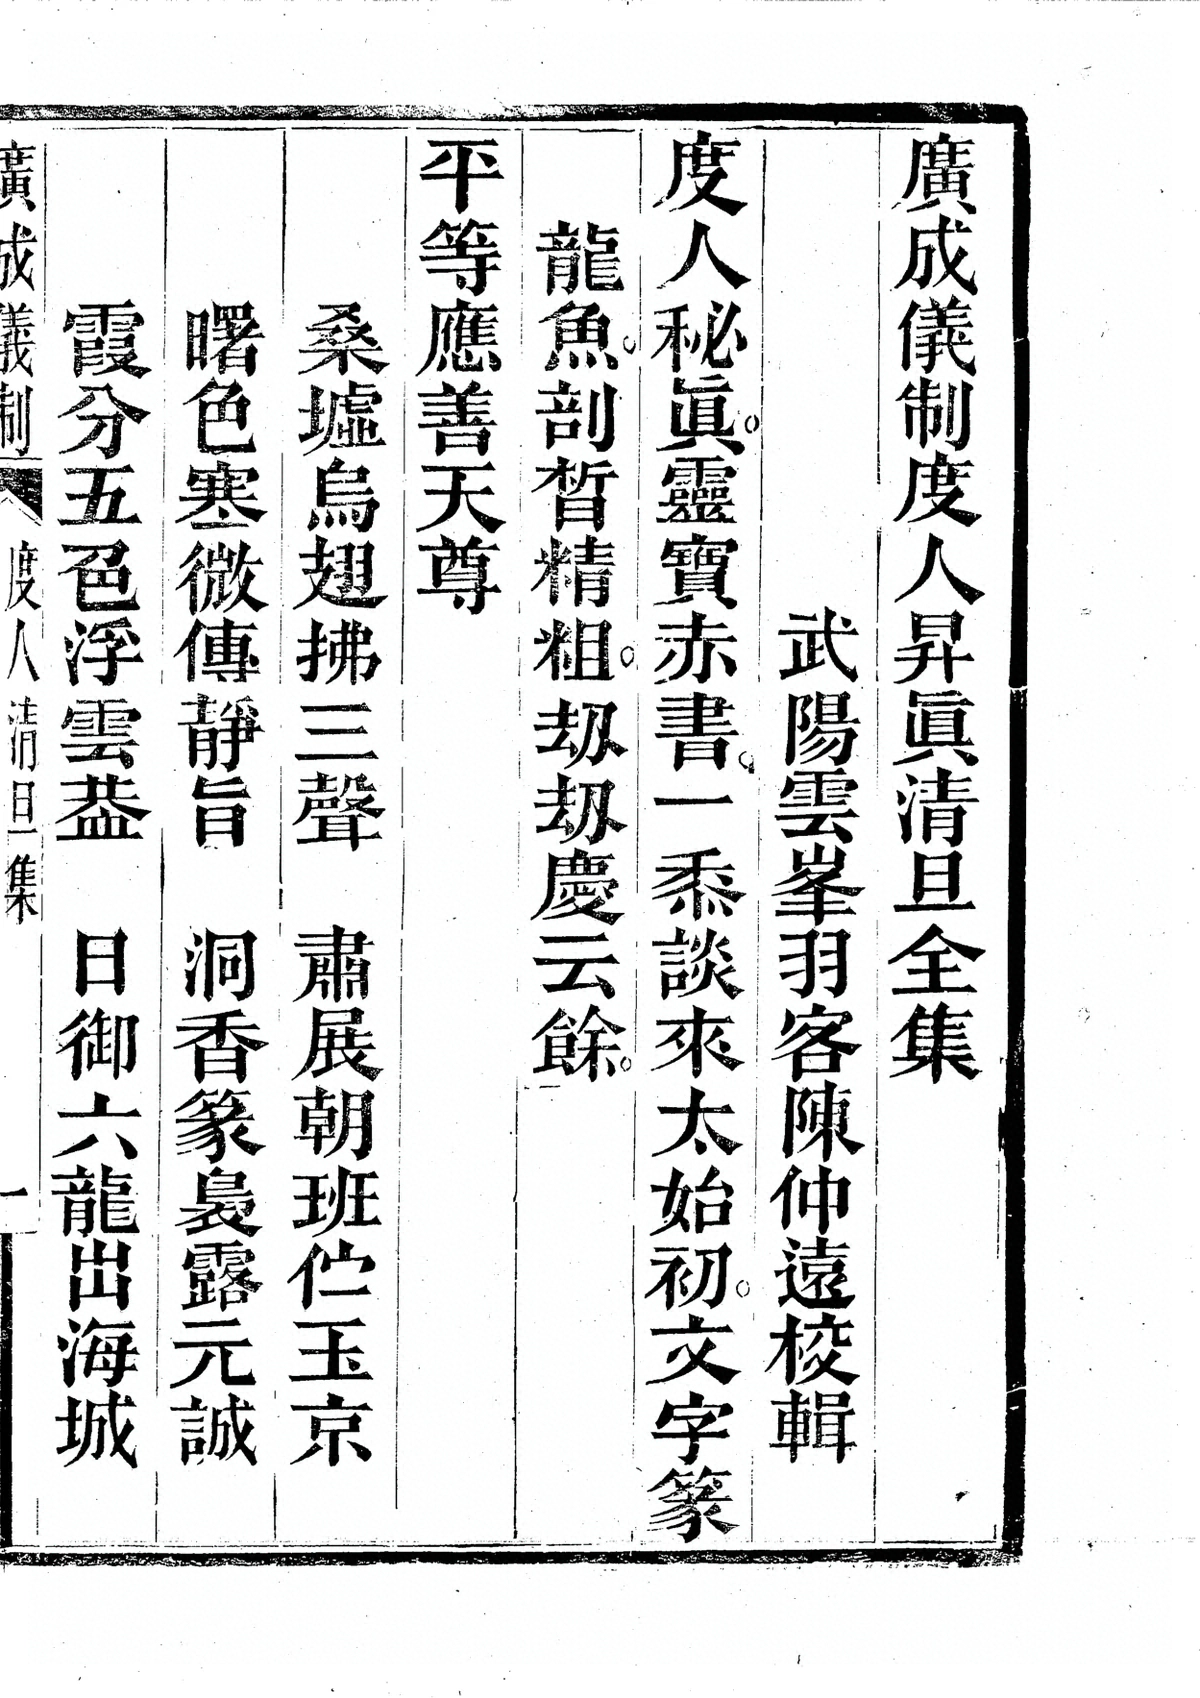 廣成儀制度人昇眞清旦全集
武陽雲峯羽客陳仲遠校輯
度人秘眞。靈寶赤書。一黍談來太始初。文字篆
龍魚。剖晳精粗。劫劫慶云餘。
平等應善天尊
桑墟烏翅拂三聲　肅展朝班伫玉京
曙色寒微傳靜旨　洞香篆裊露元誠
霞分五色浮雲葢　日御六龍出海城
廣成儀制　度人清旦集　一